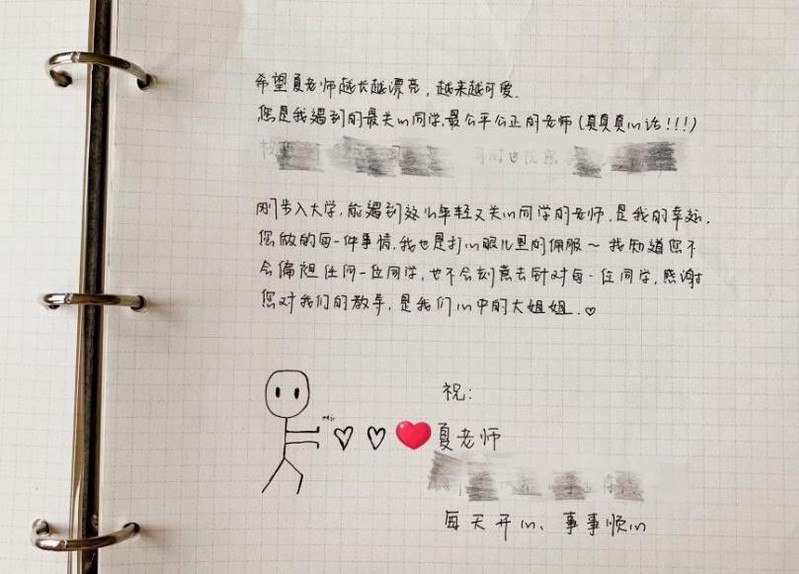 希望夏老师越长越漂亮，越来越可爱.
您是我遇到的最关心同学.最公平公正的老师(真真真心话!!!)
刚步入大学,能遇到这么年轻又关心同学的老师.是我的幸运.
您做的每一件事情.我也是打心眼儿里的佩服～我知道您不
会偏袒任何一位同学,也不会刻意去针对每一位同学.感谢
您对我们的教导.是我们心中的大姐姐.♡
祝:
夏老师
每天开心、事事顺心